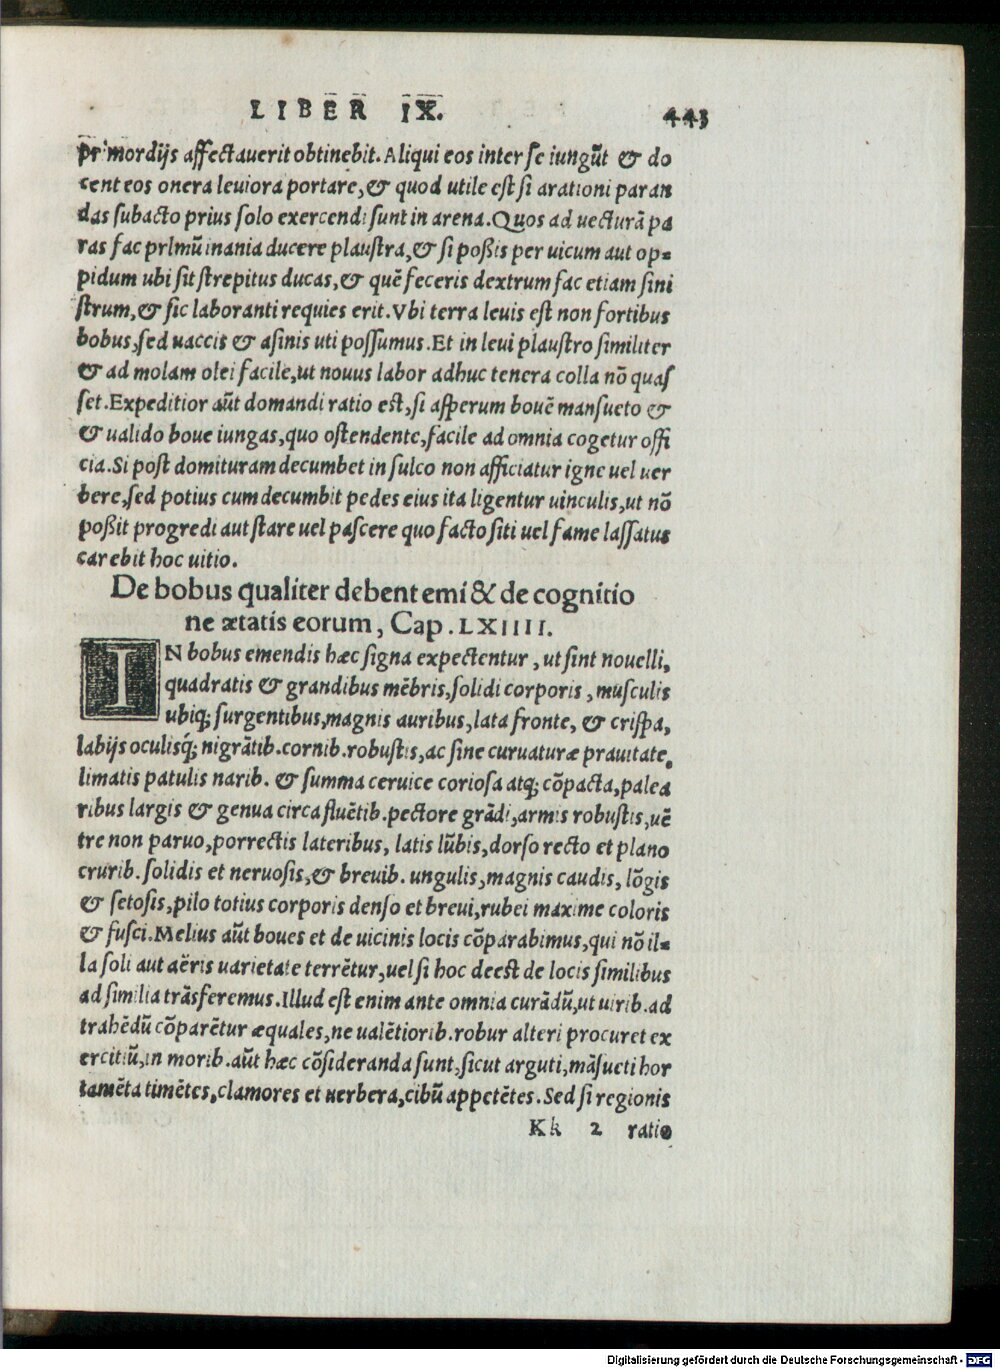 LIBER IX. 443
primordijs affectauerit obtinebit. Aliqui eos inter se iungūt & do
cent eos onera leuiora portare, & quod utile est si arationi paran
das subacto prius solo exercendi sunt in arena. Quos ad uecturā pa
ras fac prImū inania ducere plaustra, & si poßis per uicum aut op=
pidum ubi sit strepitus ducas, & quē feceris dextrum fac etiam sini
strum, & sic laboranti requies erit. Vbi terra leuis est non fortibus
bobus, sed uaccis & asinis uti possumus. Et in leui plaustro similiter
& ad molam olei facile, ut nouus labor adhuc tenera colla nō quas
set. Expeditior aūt domandi ratio est, si asperum bouē mansueto &
& ualido boue iungas, quo ostendente, facile ad omnia cogetur offi
cia. Si post domituram decumbet in sulco non afficiatur igne uel uer
bere, sed potius cum decumbit pedes eius ita ligentur uinculis, ut nō
poßit progredi aut stare uel pascere quo facto siti uel fame lassatus
carebit hoc uitio.
De bobus qualiter debent emi & de cognitio
ne ætatis eorum, Cap. LXIIII.
IN bobus emendis hæc signa expectentur, ut sint nouelli,
quadratis & grandibus mēbris, solidi corporis, musculis
ubiq; surgentibus, magnis auribus, lata fronte, & crispa,
labijs oculisq́; nigrātib. cornib. robustis, ac sine curuaturæ prauitate,
limatis patulis narib. & summa ceruice coriosa atq; cōpacta, palea
ribus largis & genua circa fluētib. pectore grādi, armis robustis, uē
tre non paruo, porrectis lateribus, latis lūbis, dorso recto et plano
crurib. solidis et neruosis, & breuib. ungulis, magnis caudis, lōgis
& setosis, pilo totius corporis denso et breui, rubei maxime coloris
& fusci. Melius aūt boues et de uicinis locis cōparabimus, qui nō il=
la soli aut aëris uarietate terrētur, uel si hoc deest de locis similibus
ad similia trāsferemus. Illud est enim ante omnia curādū, ut uirib. ad
trahēdū cōparētur æquales, ne ualētiorib. robur alteri procuret ex
ercitiū, in morib. aūt hæc cōsideranda sunt, sicut arguti, māsueti hor
tamēta timētes, clamores et uerbera, cibū appetētes. Sed si regionis
Kk 2 ratio
Digitalisierung gefördert durch die Deutsche Forschungsgemeinschaft - DFG